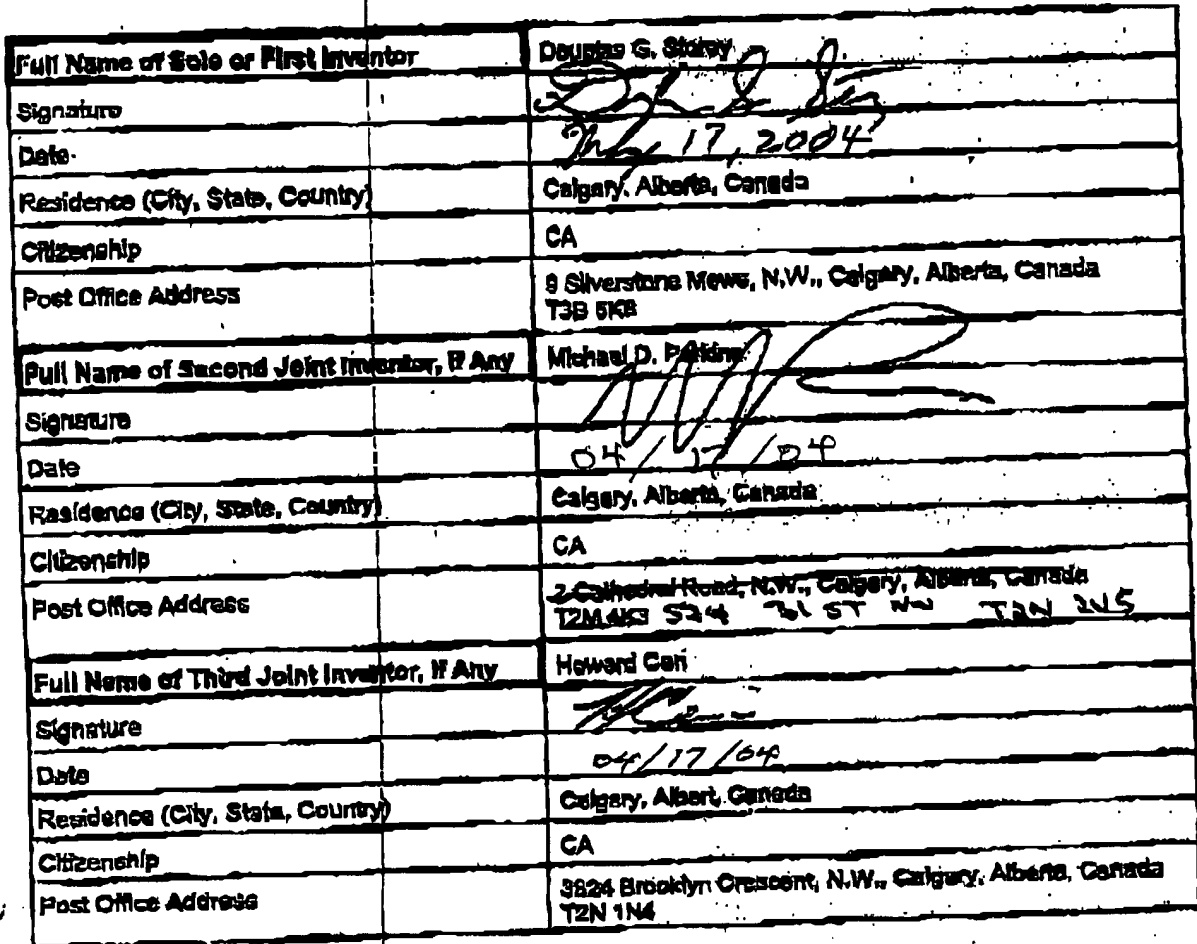 Full Name of Sole or First Inventor Douglas G. Storey
Signature
Date May 17, 2004
Residence (City, State, Country) Calgary, Alberta, Canada
Citizenship CA
Post Office Address 9 Silverstone Mews, N.W., Calgary, Alberta, Canada
T3B
Full Name of Second Joint Inventor, If Any Michael D. Parkins
Signature
Date 04/17/04
Residence (City, State, Country) Calgary, Alberta, Canada
Citizenship CA
Post Office Address 2 Cathedral Road, N.W., Calgary, Alberta, Canada
T2M 4K3 524 31 ST NW T2N 2V5
Full Name of Third Joint Inventor, If Any Howard Ceri
Signature
Date 04/17/04
Residence (City, State, Country) Calgary, Albert, Canada
Citizenship CA
Post Office Address 3824 Brooklyn Crescent, N.W., Calgary, Alberta, Canada
T2N 1N4